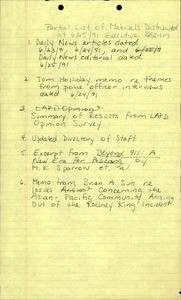 Partial List of Materials Distributed
at 6/25/91 Executive Session
1. Daily News articles dated
6/23/91, 6/24/91, and 6/25/91
Daily News editorial dated
6/25/91
2. Tom Holliday memo re themes
from police officer interviews
dated 6/24/91
3. LAPD Opinion
Summary of Results from LAPD
Opinion Survey
4. Updated Directory of Staff
5. Excerpt from Beyond 911: A
New Era for Policing by
M.K. Sparrow et al.
6. Memo from Brian A. Sun re
Issues Concerning the
Asian-Pacific Community Arising
Out of the Rodney King Incident